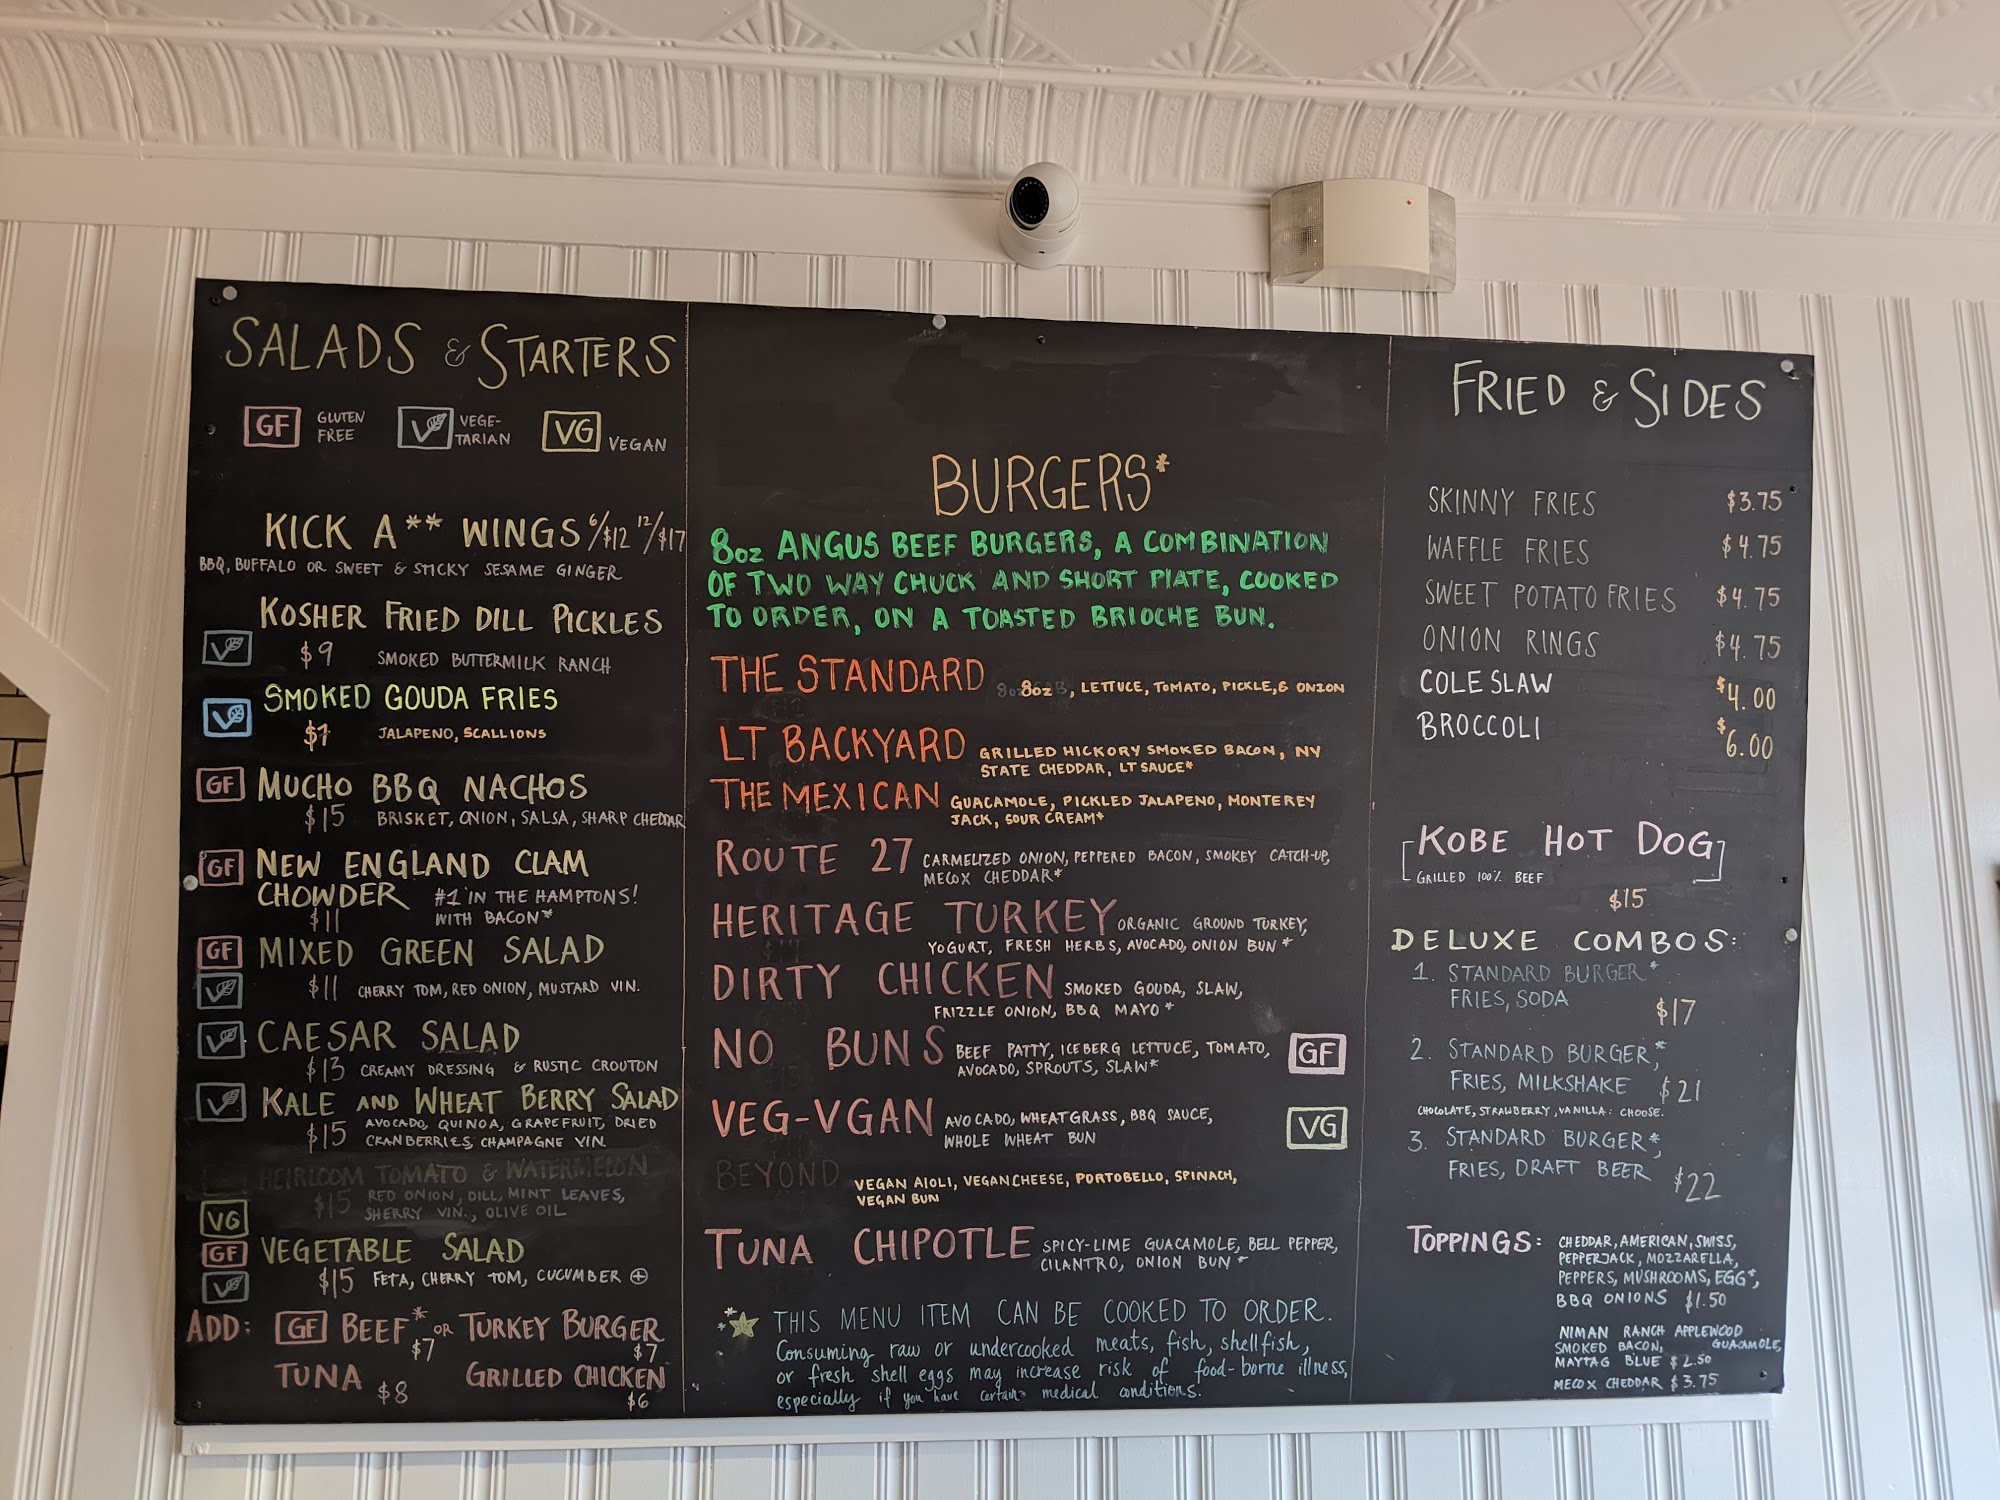 SALADS & STARTERS
GF GLUTEN FREE
V VEGE-TARIAN
VG VEGAN
KICK A** WINGS 6/$12 12/$17
BBQ, BUFFALO OR SWEET & STICKY SESAME GINGER
KOSHER FRIED DILL PICKLES
V $9 SMOKED BUTTERMILK RANCH
V SMOKED GOUDA FRIES
JALAPENO, SCALLIONS
GF MUCHO BBQ NACHOS
$15 BRISKET, ONION, SALSA, SHARP CHEDDAR
GF NEW ENGLAND CLAM
CHOWDER #1 IN THE HAMPTONS!
$11 WITH BACON*
GF MIXED GREEN SALAD
V $11 CHERRY TOM, RED ONION, MUSTARD VIN.
V CAESAR SALAD
$13 CREAMY DRESSING & RUSTIC CROUTON
V KALE AND WHEAT BERRY SALAD
AVOCADO, QUINOA, GRAPEFRUIT, DRIED
$15 CRANBERRIES, CHAMPAGNE VIN.
HEIRLOOM TOMATO & WATERMELON
$15 RED ONION, DILL, MINT LEAVES,
SHERRY VIN., OLIVE OIL
VG
GF VEGETABLE SALAD
V $15 FETA, CHERRY TOM, CUCUMBER ⊕
ADD: GF BEEF* $7 OR TURKEY BURGER $7
TUNA $8 GRILLED CHICKEN $6
BURGERS*
8oz ANGUS BEEF BURGERS, A COMBINATION
OF TWO WAY CHUCK AND SHORT PLATE, COOKED
TO ORDER, ON A TOASTED BRIOCHE BUN.
THE STANDARD 8oz, LETTUCE, TOMATO, PICKLE, & ONION
LT BACKYARD GRILLED HICKORY SMOKED BACON, NY
STATE CHEDDAR, LT SAUCE*
THE MEXICAN GUACAMOLE, PICKLED JALAPENO, MONTEREY
JACK, SOUR CREAM*
ROUTE 27 CARMELIZED ONION, PEPPERED BACON, SMOKEY CATCH-UP,
MECOX CHEDDAR*
HERITAGE TURKEY ORGANIC GROUND TURKEY,
YOGURT, FRESH HERBS, AVOCADO, ONION BUN*
DIRTY CHICKEN SMOKED GOUDA, SLAW,
FRIZZLE ONION, BBQ MAYO*
NO BUNS BEEF PATTY, ICEBERG LETTUCE, TOMATO, GF
AVOCADO, SPROUTS, SLAW*
VEG-VGAN AVOCADO, WHEATGRASS, BBQ SAUCE, VG
WHOLE WHEAT BUN
BEYOND VEGAN AIOLI, VEGAN CHEESE, PORTOBELLO, SPINACH,
VEGAN BUN
TUNA CHIPOTLE SPICY-LIME GUACAMOLE, BELL PEPPER,
CILANTRO, ONION BUN*
THIS MENU ITEM CAN BE COOKED TO ORDER.
Consuming raw or undercooked meats, fish, shellfish,
or fresh shell eggs may increase risk of food-borne illness,
especially if you have certain medical conditions.
FRIED & SIDES
SKINNY FRIES $3.75
WAFFLE FRIES $4.75
SWEET POTATO FRIES $4.75
ONION RINGS $4.75
COLE SLAW $4.00
BROCCOLI $6.00
KOBE HOT DOG
GRILLED 100% BEEF
$15
DELUXE COMBOS:
1. STANDARD BURGER*
FRIES, SODA $17
2. STANDARD BURGER*,
FRIES, MILKSHAKE $21
CHOCOLATE, STRAWBERRY, VANILLA: CHOOSE.
3. STANDARD BURGER*,
FRIES, DRAFT BEER $22
TOPPINGS: CHEDDAR, AMERICAN, SWISS,
PEPPERJACK, MOZZARELLA,
PEPPERS, MUSHROOMS, EGG*,
BBQ ONIONS $1.50
NIMAN RANCH APPLEWOOD
SMOKED BACON, GUACAMOLE,
MAYTAG BLUE $2.50
MECOX CHEDDAR $3.75